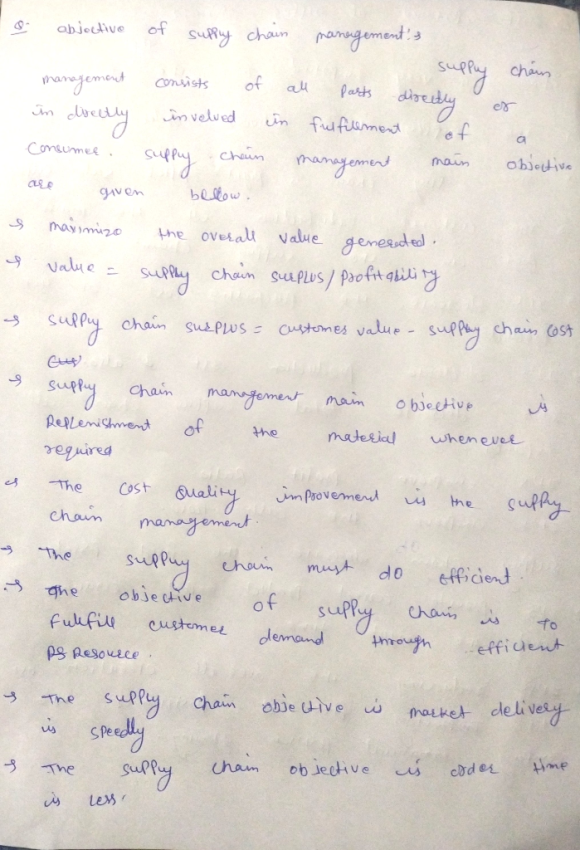 Q. objective of supply chain management:→
supply chain
management consists of all parts directly or
in directly involved in fulfillment of a
Consumer. supply chain management main objective
are given bellow.
→ maximize the overall value generated.
→ value = supply chain surplus/profitability
→ supply chain surplus = customer value - supply chain cost
→ supply chain management main objective is
Replenishment of the material whenever
required
→ The cost quality improvement is the supply
chain management.
→ The supply chain must do efficient.
→ The objective of supply chain is to
fulfill customer demand through efficient
Resource.
→ The supply chain objective is market delivery
is speedly
→ The supply chain objective is order time
is less.